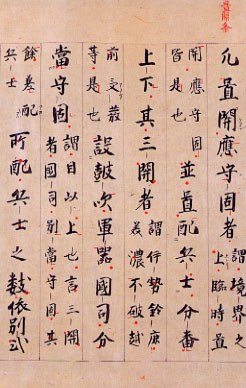 置開条
凡置開應守固者謂境界之上臨時置
開應守固皆是也並置配兵士分番
上下其三開者謂伊勢鈴鹿美濃不破越
前愛發等是也設鼓吹軍器國司分
當守固謂目以上也言三開者國司別當守固其
餘差配兵士所配兵士之数依別式